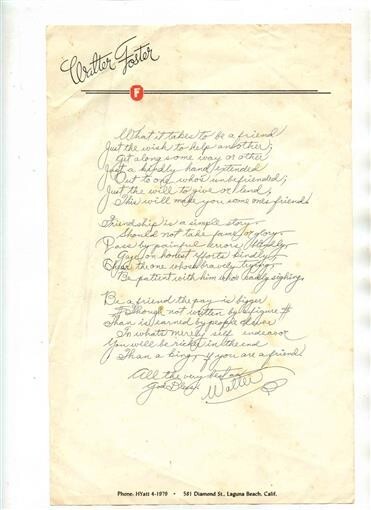 Walter Foster
F
What it takes to be a friend
Just the wish to help another;
Get along some way or other
Just a kindly hand extended
Out to one who's unbefriended;
Just the will to give or lend,
This will make you some ones friend.
Friendship is a simple story
Should not take fame or glory
Pass by painful errors blindly,
Gaze on honest efforts kindly,
Cheer the one who's bravely trying
Be patient with him who's sadly sighing,
Be a friend the pay is bigger
Though not written by a figure
Than is earned by people clever
In what's merely self endeavor
You will be richer in the end
Than a king if you are a friend.
All the very best and
God Bless,
Walter
Phone: HYatt 4-1979 • 581 Diamond St., Laguna Beach, Calif.